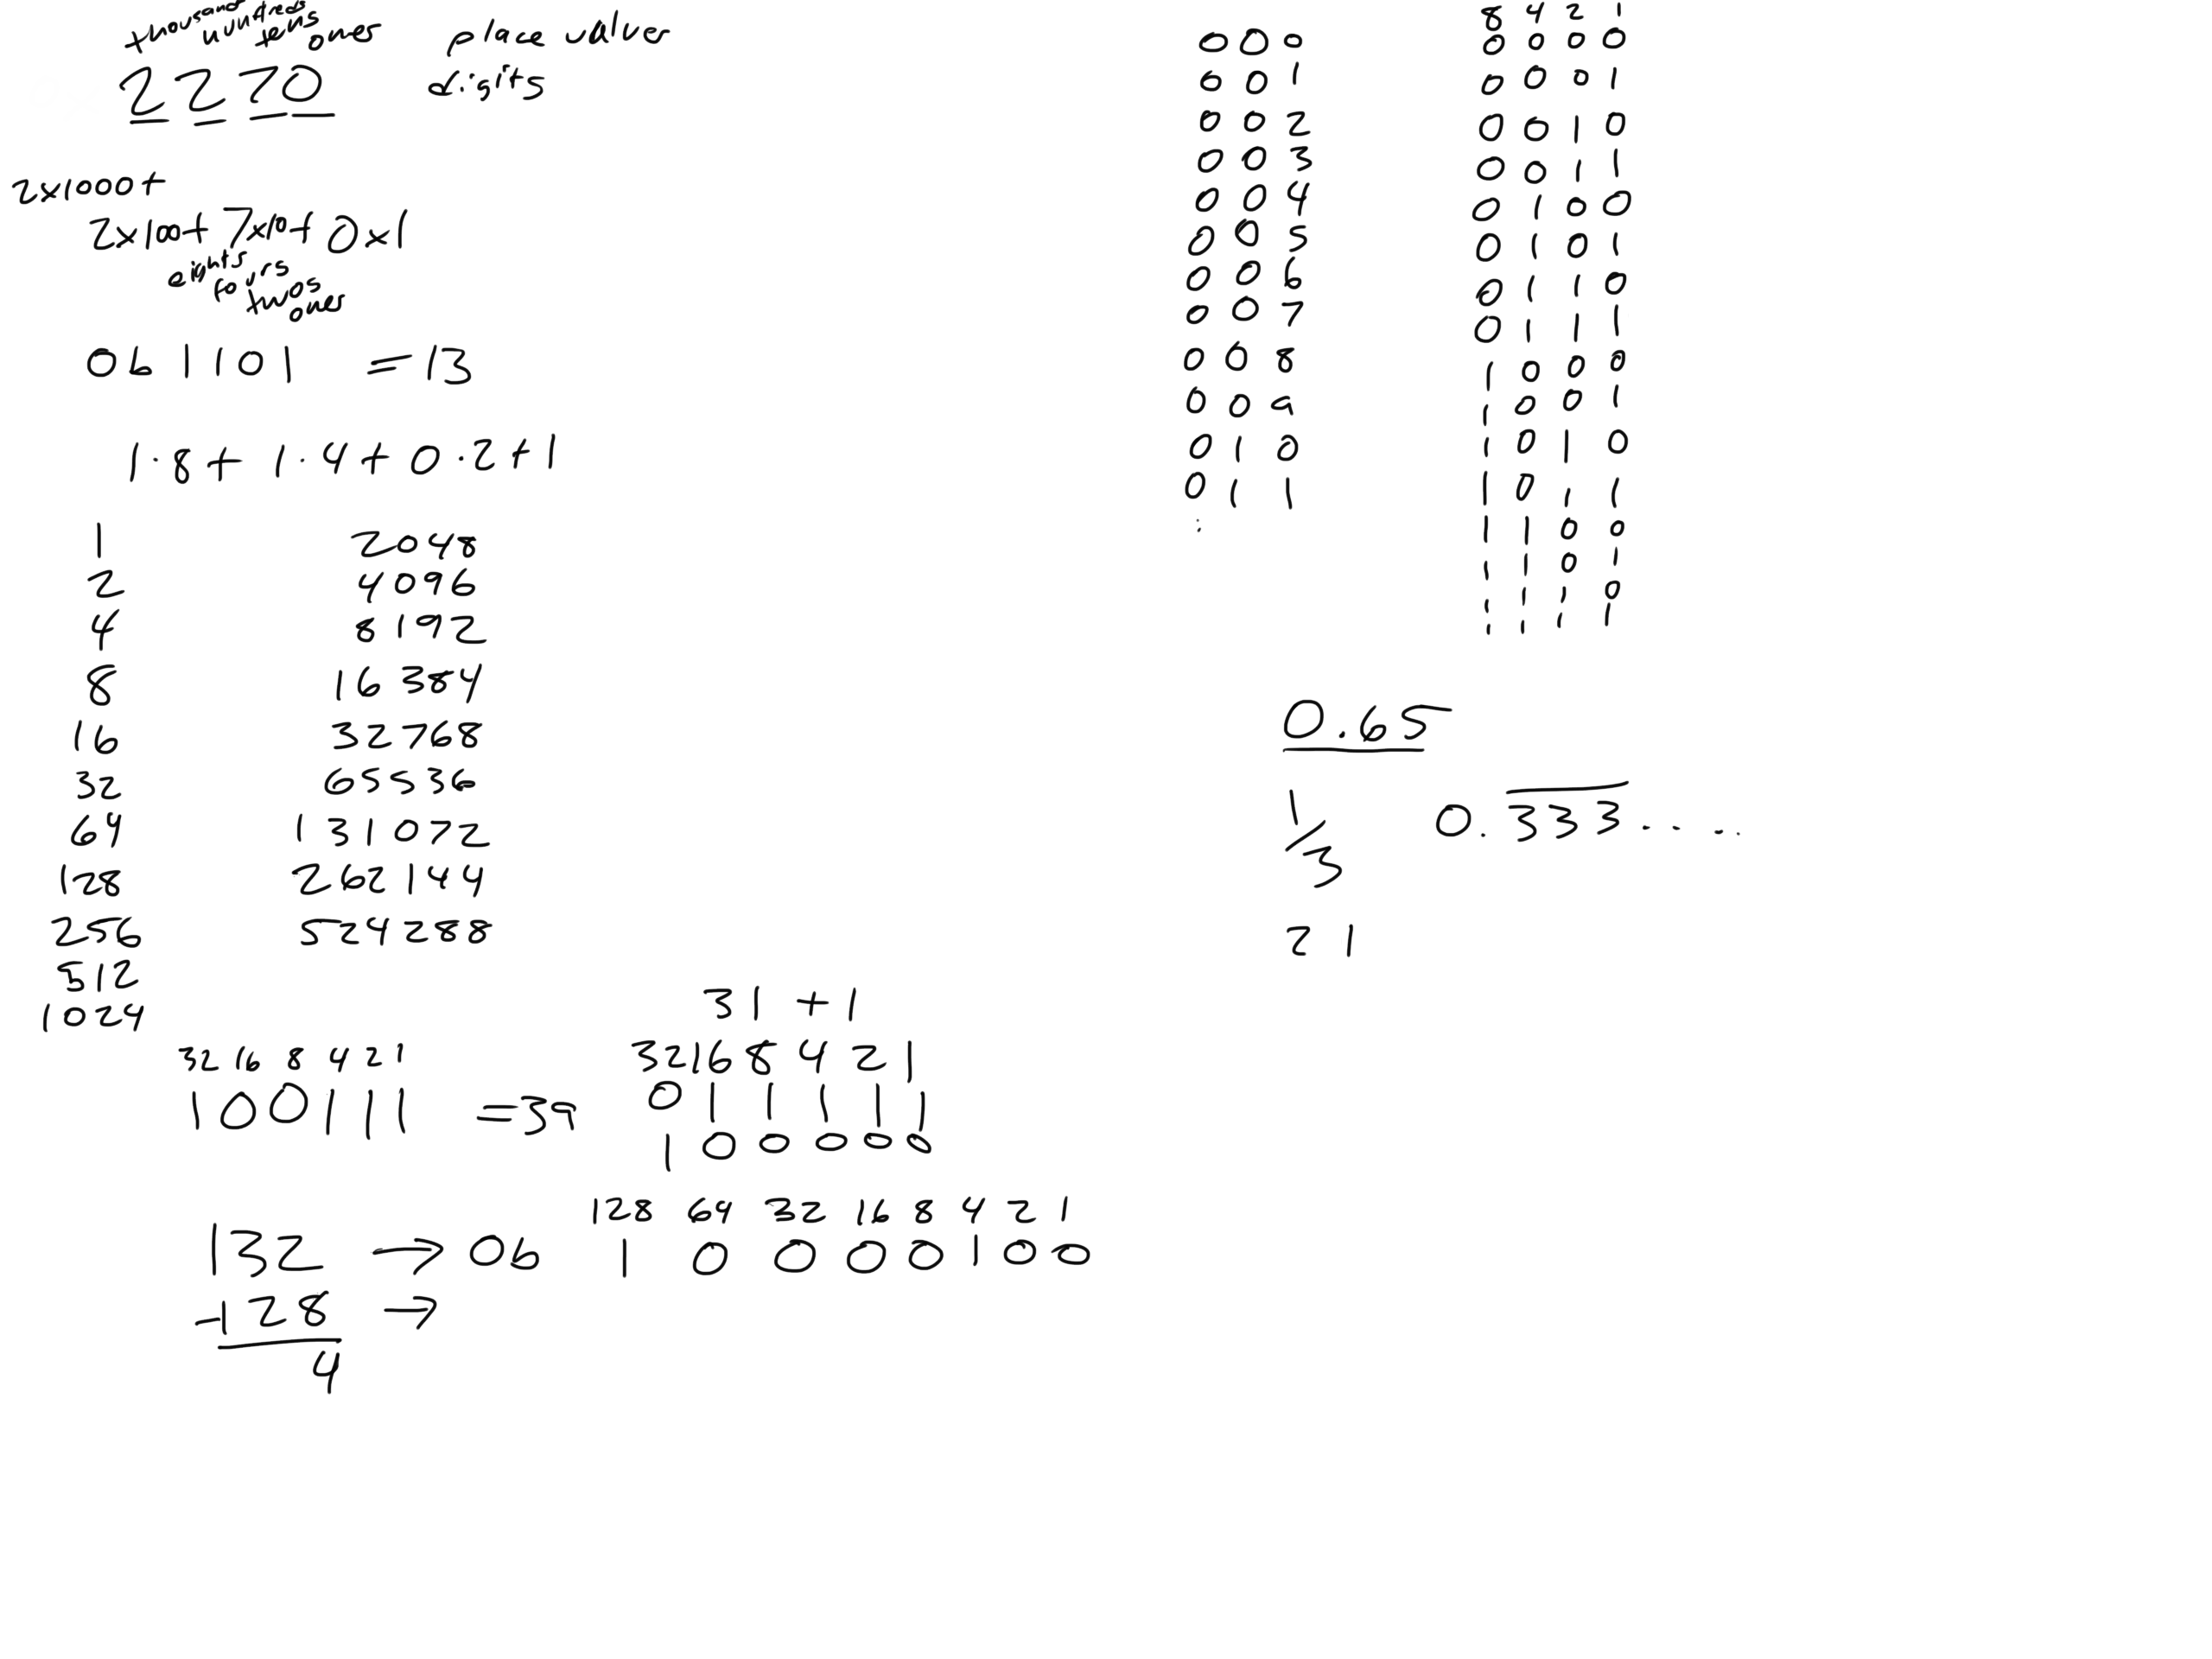 thousand hundreds tens ones
place values
2270
digits
2x1000+
2x100+ 7x10+ 0x1
eights fours twos ones
0b1101 =13
1·8+ 1·4+ 0·2+1
1
2
4
8
16
32
64
128
256
512
1024
2048
4096
8192
16384
32768
65536
131072
262144
524288
32 16 8 4 2 1
100111 =39
31 +1
32 16 8 4 2 1
0 1 1 1 1 1
1 0 0 0 0 0
128 64 32 16 8 4 2 1
132 → 0b 1 0 0 0 0 1 0 0
-128 →
4
0 0 0
0 0 1
0 0 2
0 0 3
0 0 4
0 0 5
0 0 6
0 0 7
0 0 8
0 0 9
0 1 0
0 1 1
:
8 4 2 1
0 0 0 0
0 0 0 1
0 0 1 0
0 0 1 1
0 1 0 0
0 1 0 1
0 1 1 0
0 1 1 1
1 0 0 0
1 0 0 1
1 0 1 0
1 0 1 1
1 1 0 0
1 1 0 1
1 1 1 0
1 1 1 1
0.65
1/3 0.333.....
2 1